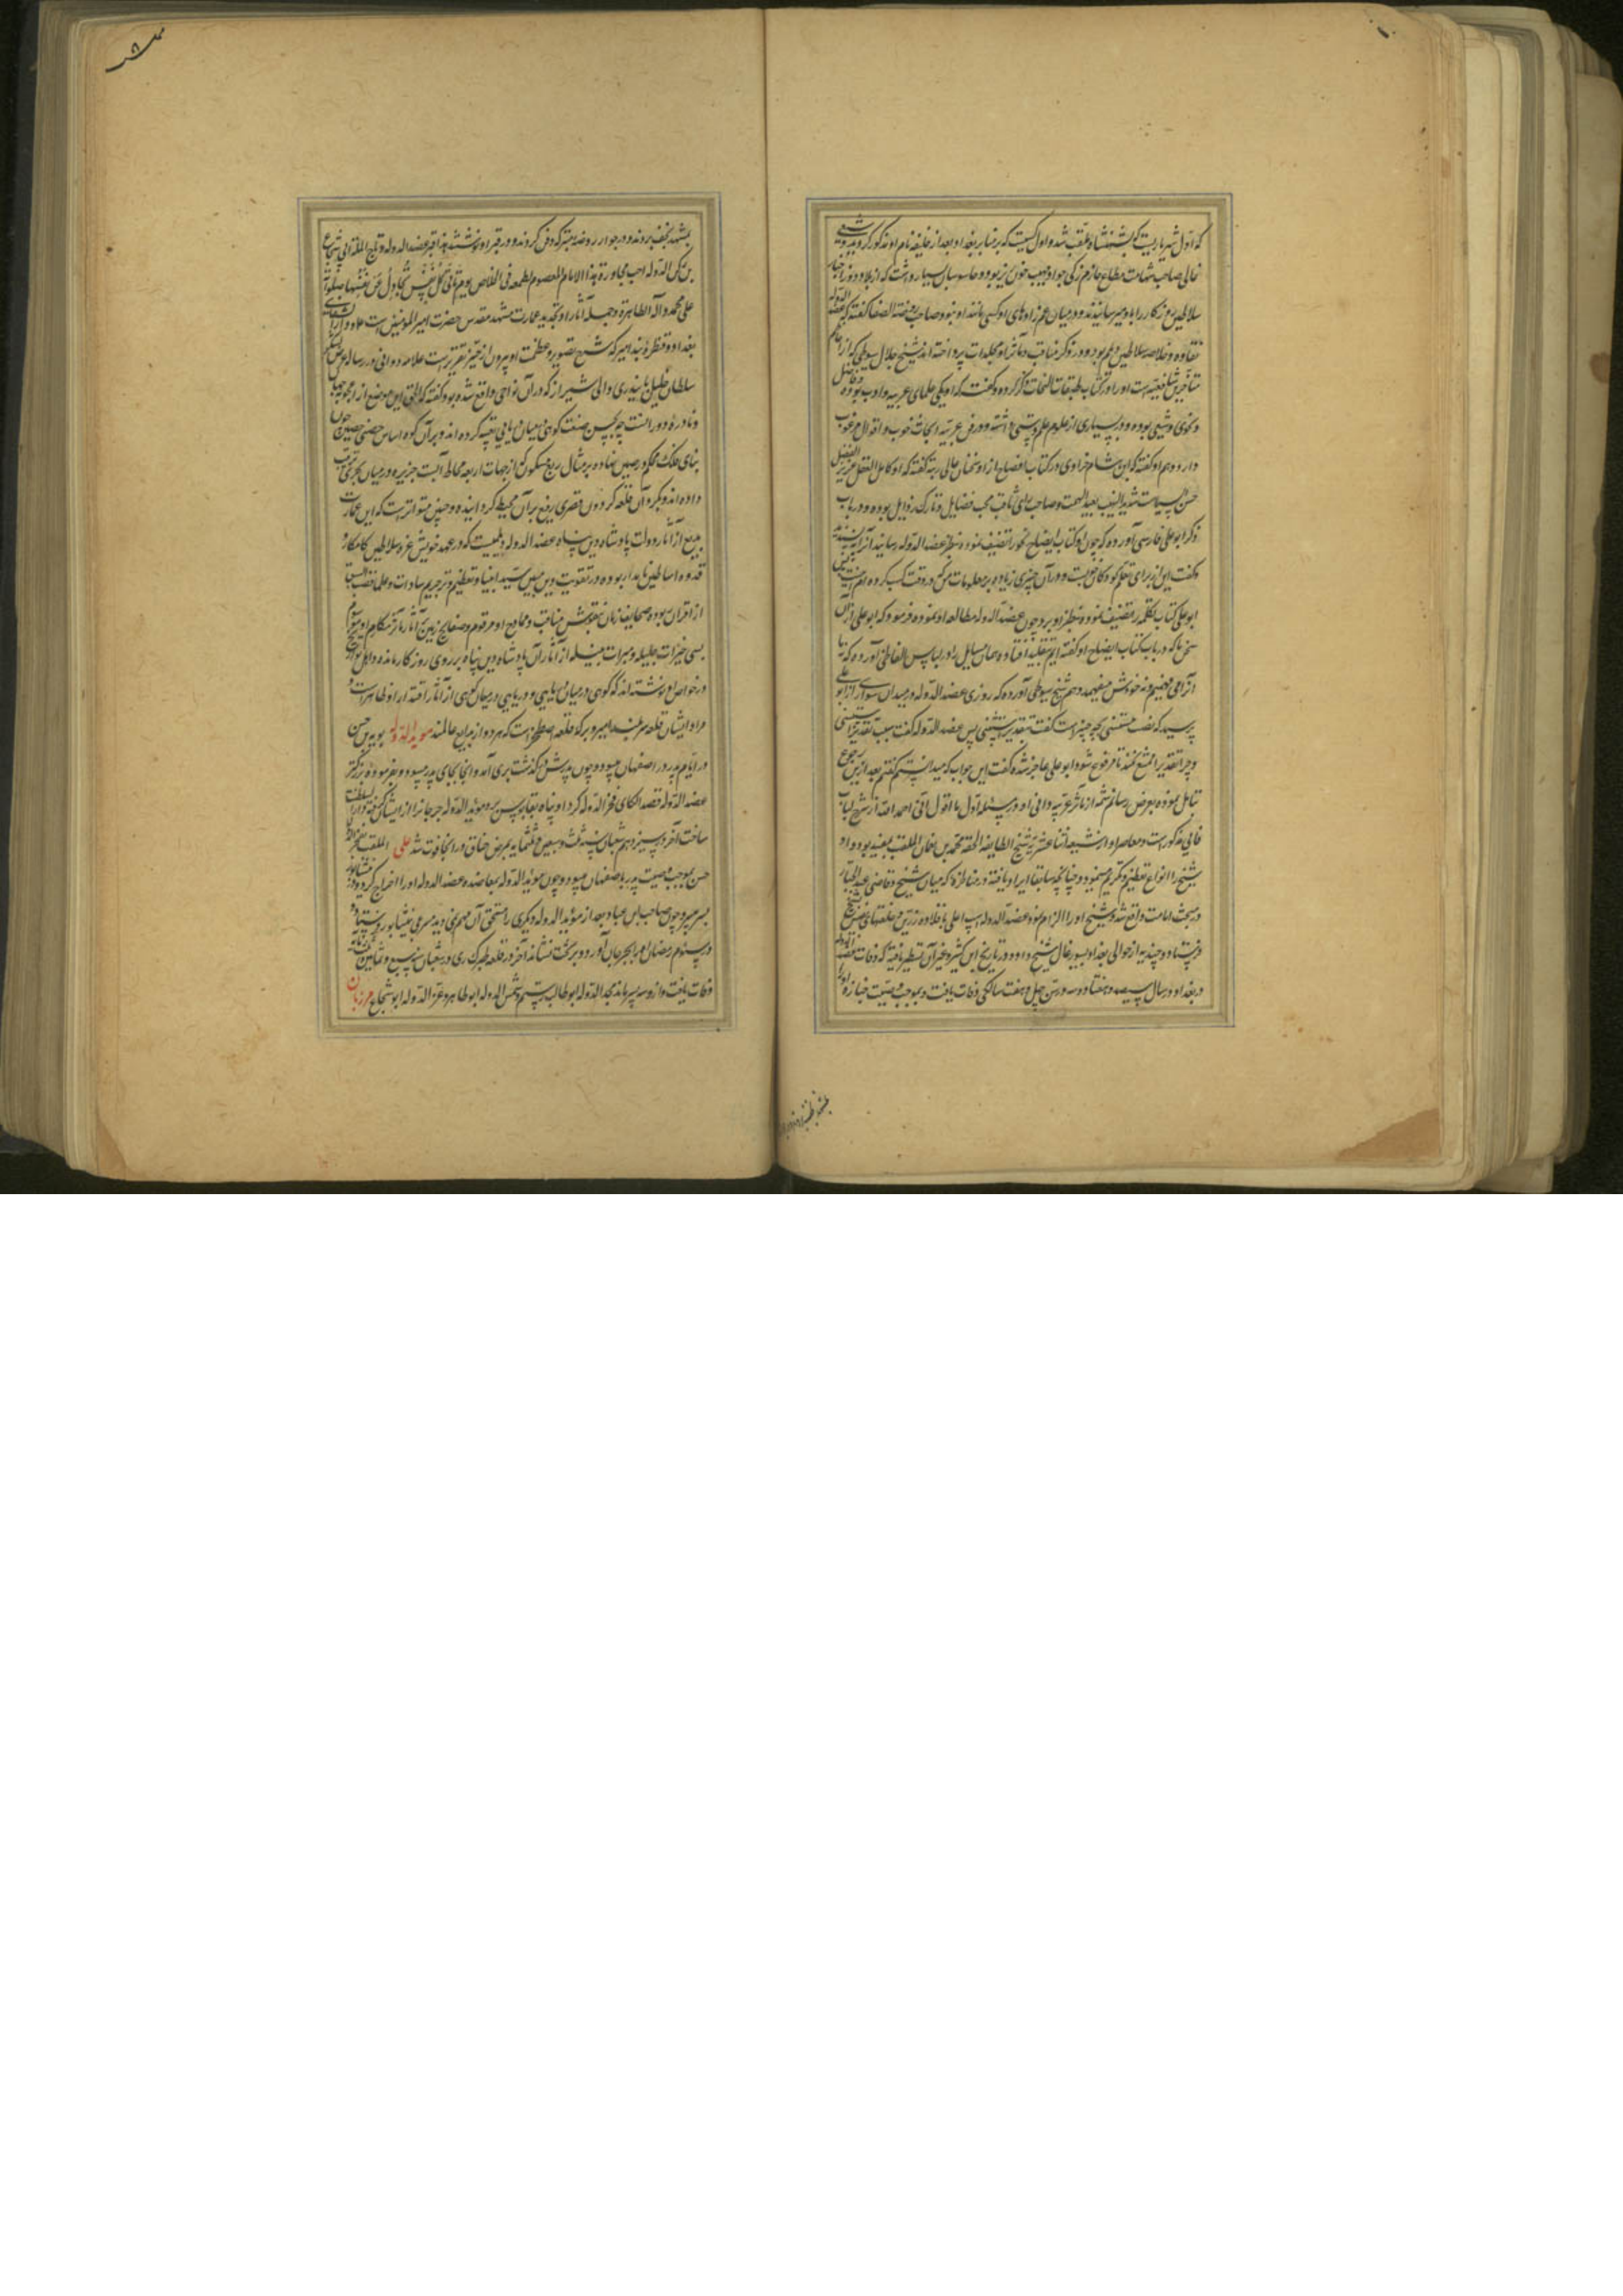 که اول شهریاریست که بشهنشاه ملقب شد و اول کسیست که بر منابر بغداد بعد از خلیفه نام او مذکور کردید و
غالی صاحب شهامت مطاع حازم زکی جواد مهیب خون ریز بود و جاسوسان بسیار داشت که از بلاد دور اخبار
سلاطین روزکار را باو میرسانیدند و در میان عم زادهای او کسی مانند او نبود و صاحب روضة الصفا کفته که عضد الدوله
نقاوه و خلاصه سلاطین دیلم بود و در ذکر مناقب و مآثر او مجلدات پرداخته اند شیخ جلال سیوطی که از اعاظم
متأخرین شافعیه است او را در کتاب طبقات النحات ذکر کرده و کفته که او یکی علمای عربیه و ادب بوده و فاضل
و نحوی و شیعی بوده و در بسیاری از علوم علم و دستی داشته و در فن عربیه ابحاث خوب و اقوال مرغوب
دارد و هم او کفته که ابن هشام خراوی در کتاب افصاح از او سخنان عالی رتبه کفته که او کامل العقل غزیر الفضل
حسن السیاست شدید الهیب بعید الهمت و صاحب رای ثاقب محب فضایل و تارک رذایل بوده و در باب
ذکر ابو علی فارسی آورده که چون او کتاب ایضاح نحو را تصنیف نموده بنظر عضد الدوله رسانید آنرا نپسندید
و کفت این از برای تعلم کودکان خوبست و در آن چیزی زیاده بر معلومات من که در وقت کسب کرده ام نیست پس
ابو علی کتاب تکلمه را تصنیف نموده بنظر او برد چون عضد الدوله مطالعه او نموده فرمود که ابو علی از آن
سخن ما که در باب کتاب ایضاح او کفته ایم بقلبه افتاده همان مسایل را در لباس الفاظی آورده که نه ما
آنرا می فهمیم و نه خودش میفهمد و هم شیخ سیوطی آورده که روزی عضد الدوله در میدان سواری از ابو علی
پرسید که نصب مستثنی بچه چیز است کفت بتقدیر استثنی پس عضد الدوله کفت سبب تقدیر استثنی
و چرا تقدیر امتنع نکنند تا مرفوع شود ابو علی عاجز شده کفت این جواب که میدانستم کفتم بعد ازین رجوع
بتأمل نموده بعرض رسانم شمه از مآثر عزیه وافی او در مسئله اول یا اقول باقی احمد الله از شرح لباب
فالی مذکور است و معاصر او از شیعه اثنا عشریه شیخ الطایفه الحقه محمد بن نعمان الملقب بمفید بود و او
شیخ را انواع تعظیم و تکریم مینمود و چنانچه سابقا ایراد یافته در مناظرۀ که میان شیخ و قاضی عبد الجبار
در مبحث امامت واقع شد و شیخ او را الزام نمود عضد الدوله اسب اعلی با قلاده زرین و خلعتهای
فرستاد و چند دیه از حوالی بغداد بسیورغال شیخ داد و در تاریخ ابن کثیر و غیر آن تسطیر یافته که وفات عضد الدوله
در بغداد در سال سیصد و هفتاد و سه در سن چهل و هفت سالکی وفات یافت و بموجب وصیت جنازه او را
بمشهد نجف بردند و در جوار روضه متبرکه دفن کردند و در قبر او نوشتند هذا قبر عضد الدوله و تاج الملة ابی شجاع
بن رکن الدوله احب مجاورة هذا الامام المعصوم لطمعه فی الخلاص یوم تأتی کل نفس تجادل عن نفسها و صلواته
علی محمد و آله الطاهرة و جمله آثار او تجدید عمارت مشهد مقدس حضرت امیر المؤمنین است و دار الشفای
بغداد و قنطرۀ بند امیر که شرح تصویر و عظمت او بیرون از حیز تقریر است علامه دوانی در رساله عرض لشکر
سلطان خلیل بایندری والی شیراز که در آن نواحی واقع شده بود کفته که الحق این موضع از اعجوبه جهان
و نادره دورانست چه بحسن صنعت کوهی بمیان دریای تعبیه کرده اند و بر آن کوه اساس حصنی حصین چون
بنای فلک محکم و رصین نهاده بر مثال ربع مسکون که از جهات اربعه محاط آبست جزیره در میان بحری ترتیب
داده اند و بکرد آن قلعه کردون قصری رفیع بر آن محیط کردانیده و چنین متواتر است که این عمارت
بدیع از آثار دولت پادشاه دین پناه عضد الدوله دیلمیست که در عهد خویش غره سلاطین کامکار و
قدوه اساطین نامدار بوده و در تقویت دین مبین سید انبیا و تعظیم و تحریم سادات و علما قصب السبق
از اقران ربوده صحایف زمان بنقوش مناقب و محامد او مرقوم و صفایح زمین بآثار مآثر مکارم او موسوم
بسی خیرات جلیله و مبرات جمیله از آثار آن پادشاه دین پناه بر روی روزکار مانده و اهل تواریخ
در خواص او نوشته اند که کوهی در میان دریایی و دریایی در میان کوهی از آثار اقتدار او ظاهر است و
مراد ایشان قلعه سر بند امیر و برکه قلعه اصطخر است که هر دو از بدایع عالمند موید الدوله بویه بن حسن
در ایام پدر در اصفهان میبود و چون پدرش در کذشت بری آمد و انجا بجای پدر میبود و بفرموده بزرکتر
عضد الدوله قصد الکای فخر الدوله کرد او پناه بقابوس برد موید الدوله جرجان را از ایشان کرفته دار السلطنت
ساخت آخر در سیزدهم شعبان سنه ثلث و سبعین و ثلثمایه بمرض خناق در انجا فوت شد علی الملقب بفخر الدوله
حسن بموجب وصیت پدر باصفهان میبود و چون موید الدوله بمعاضده عضد الدوله او را اخراج کرد و در نیشابور
بسر میبرد چون صاحب ابن عباد بعد از موید الدوله دیکری را مستحق آن مهم نمی دید مسرعی بنیشابور فرستاد و
در سیوم رمضان او را بجرجان آورد و بر تخت نشاند آخر در قلعه طبرک ری در شعبان سنه سبع و ثمانین و ثلثمایه
وفات یافت و ازو سه پسر ماند مجد الدوله ابو طالب رستم و شمس الدوله ابو طاهر و عز الدوله ابو شجاع مرزبان